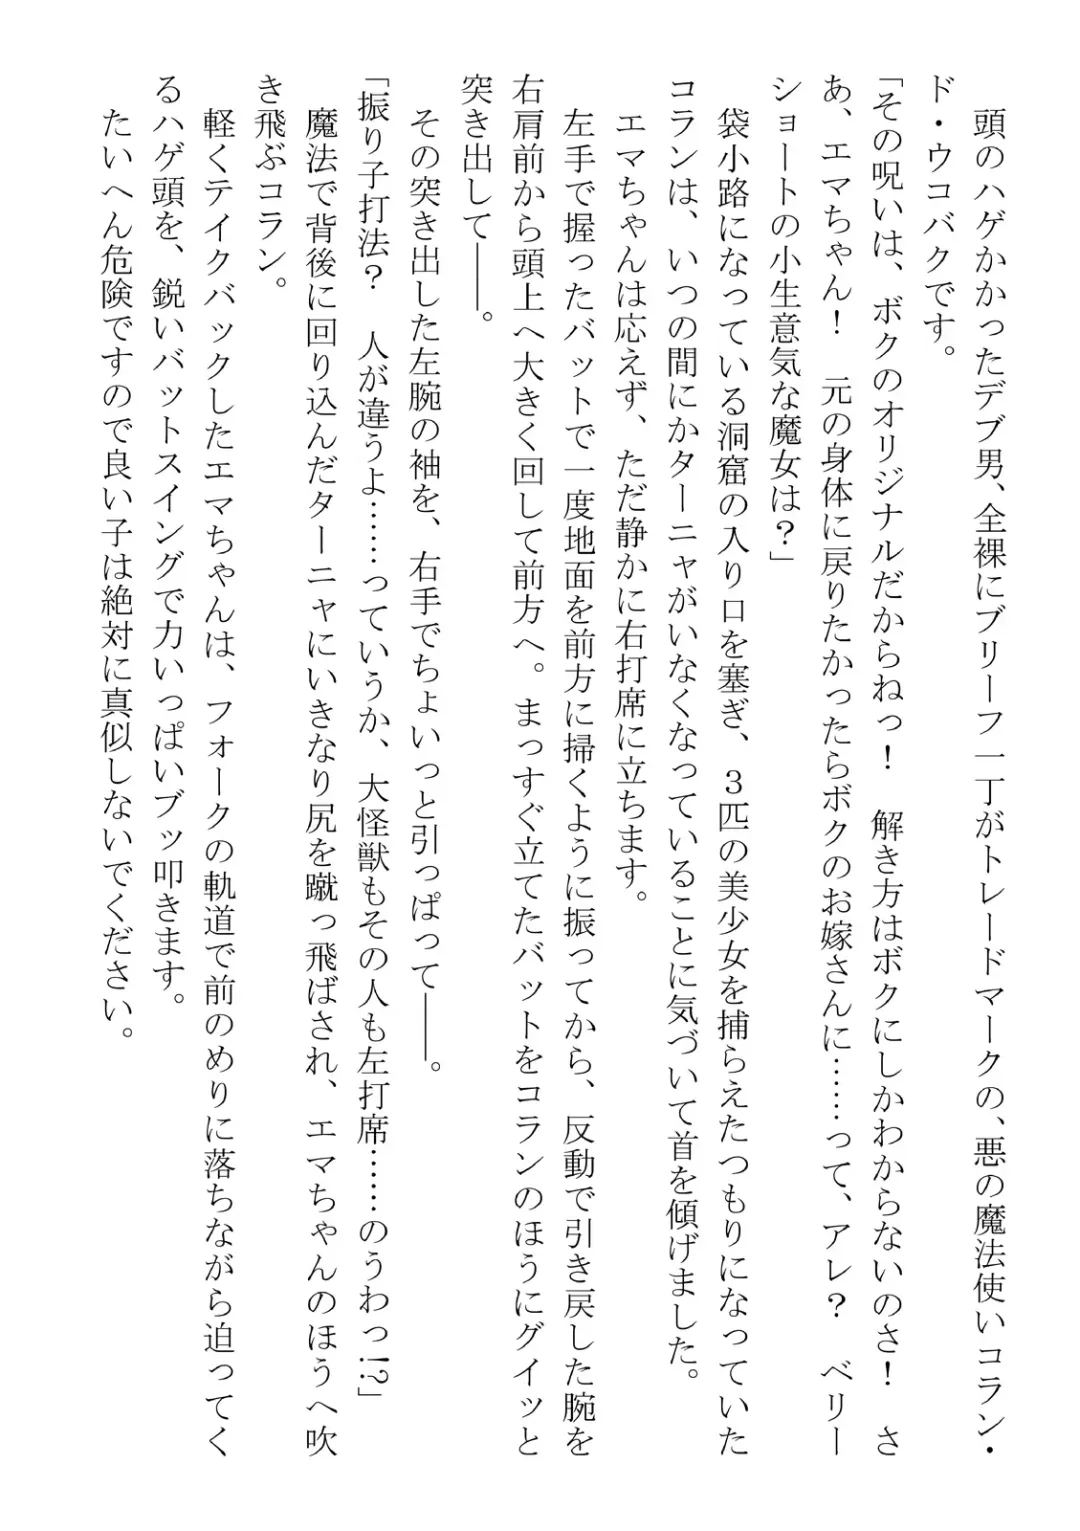 頭のハゲかかったデブ男、全裸にブリーフ一丁がトレードマークの、悪の魔法使いコラン・
ド・ウコバクです。
「その呪いは、ボクのオリジナルだからねっ！　解き方はボクにしかわからないのさ！　さ
あ、エマちゃん！　元の身体に戻りたかったらボクのお嫁さんに……って、アレ？　ベリー
ショートの小生意気な魔女は？」
　袋小路になっている洞窟の入り口を塞ぎ、３匹の美少女を捕らえたつもりになっていた
コランは、いつの間にかターニャがいなくなっていることに気づいて首を傾げました。
　エマちゃんは応えず、ただ静かに右打席に立ちます。
　左手で握ったバットで一度地面を前方に掃くように振ってから、反動で引き戻した腕を
右肩前から頭上へ大きく回して前方へ。まっすぐ立てたバットをコランのほうにグイッと
突き出して――。
　その突き出した左腕の袖を、右手でちょいっと引っぱって――。
「振り子打法？　人が違うよ……っていうか、大怪獣もその人も左打席……のうわっ!?」
　魔法で背後に回り込んだターニャにいきなり尻を蹴っ飛ばされ、エマちゃんのほうへ吹
き飛ぶコラン。
　軽くテイクバックしたエマちゃんは、フォークの軌道で前のめりに落ちながら迫ってく
るハゲ頭を、鋭いバットスイングで力いっぱいブッ叩きます。
　たいへん危険ですので良い子は絶対に真似しないでください。